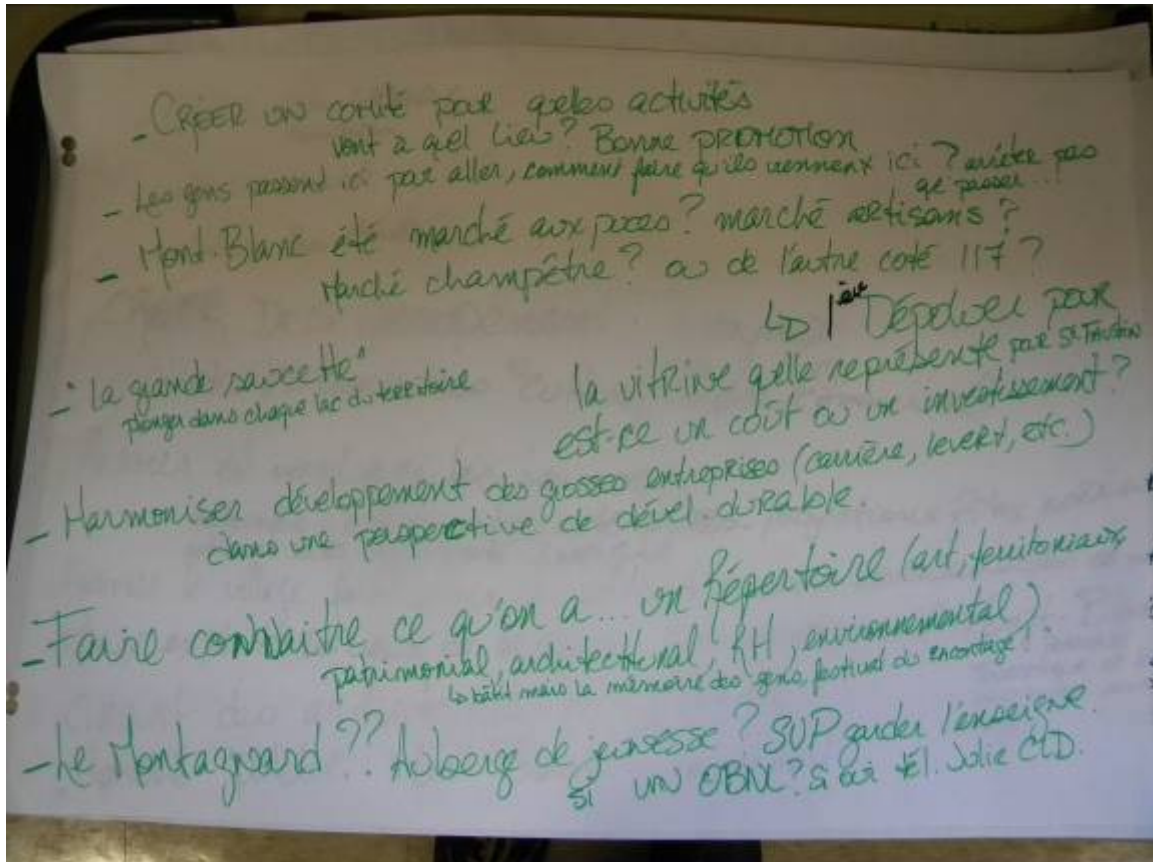 - CRÉER UN comité pour quelles activités
vont à quel lieu? Bonne PROMOTION
- Les gens passent ici pour aller, comment faire qu'ils viennent ici? arrête pas
de passer...
- Mont-Blanc été marché aux puces? marché artisans?
Marché champêtre? ou de l'autre coté 117?
↳ 1ère Dépoluer pour
- "La grande saucette"
plonger dans chaque lac du territoire
la vitrine qelle représente pour St Faustin
est-ce un coût ou un investissement?
- Harmoniser développement des grosses entreprises (carrière, levert, etc.)
dans une perspective de dével durable.
- Faire connaitre ce qu'on a... un Répertoire (art, territoriaux,
patrimonial, architectural, RH, environnemental)
↳ bâtit mais la mémoire des gens, festival du
- Le Montagnard?? Auberge de jeunesse? SVP garder l'enseigne.
Si UN OBNL? Si oui tél. Julie CLD.